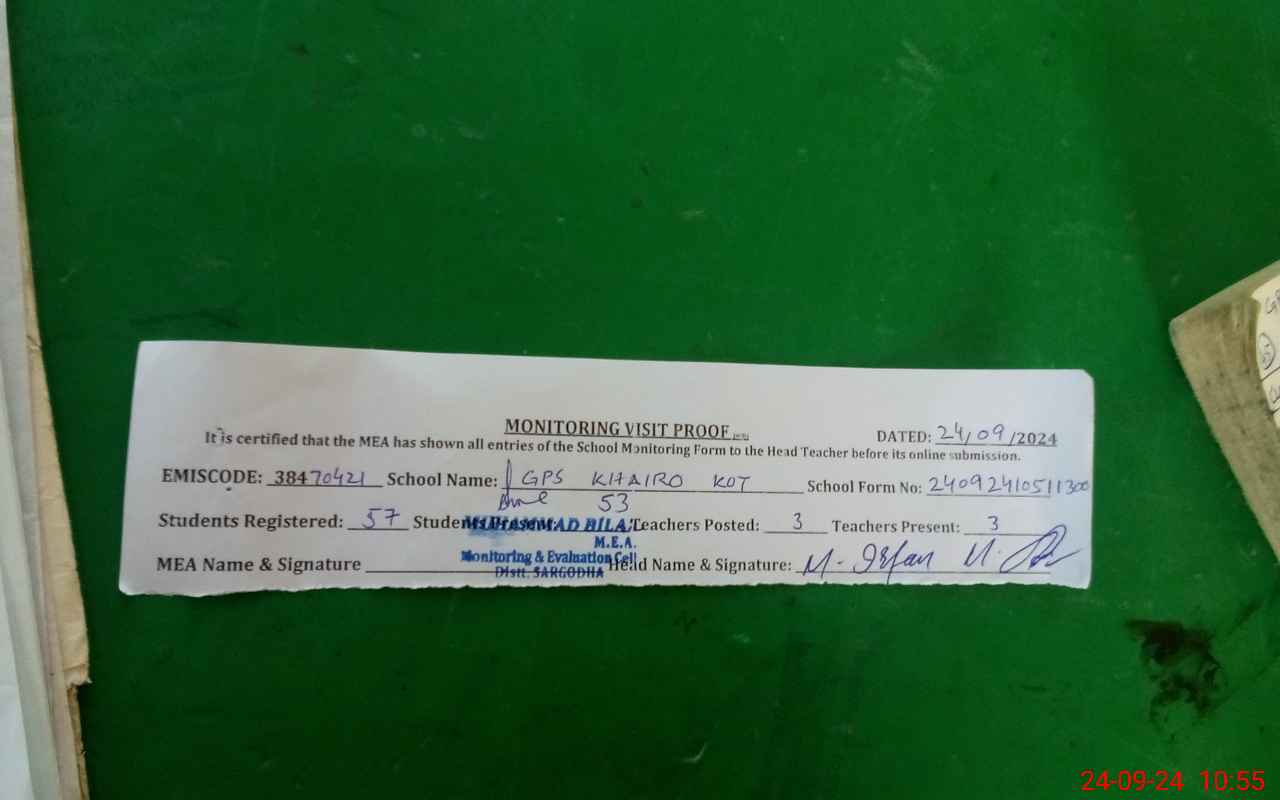 MONITORING VISIT PROOF
DATED: 24/09/2024
It is certified that the MEA has shown all entries of the School Monitoring Form to the Head Teacher before its online submission.
EMISCODE: 38470421 School Name: GPS KHAIRO KOT School Form No: 24092410511300
53
Students Registered: 57 Students Present: Teachers Posted: 3 Teachers Present: 3
MUHAMMAD BILAL
M.E.A.
Monitoring & Evaluation Cell
Distt. SARGODHA
MEA Name & Signature Head Name & Signature: M. Irfan
24-09-24 10:55